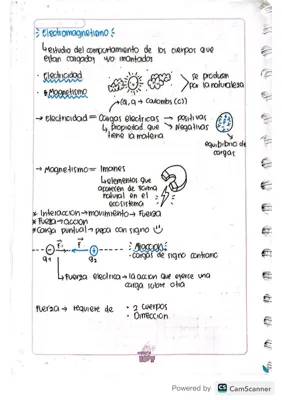 Electromagnetismo
↳ estudio del comportamiento de los cuerpos que
estan cargados y/o imantados
• Electricidad
• Magnetismo
se producen
por la naturaleza
→ Q, q → coulombs (C)
→ electricidad = Cargas electricas → positivas
↳ propiedad que → Negativas
tiene la materia
equilibrio de
cargas
→ Magnetismo = Imanes
↳ elementos que
aparecen de forma
natural en el
ecosistema
* Interacción → movimiento → Fuerza
* Fuerza → acción
* Carga puntual → pepa con signo
F F
q1 q2
Atracción:
- cargas de signo contrario
↳ Fuerza electrica → la accion que ejerce una
carga sobre otra
Fuerza → requiere de • 2 cuerpos
• Dirección
Powered by CS CamScanner